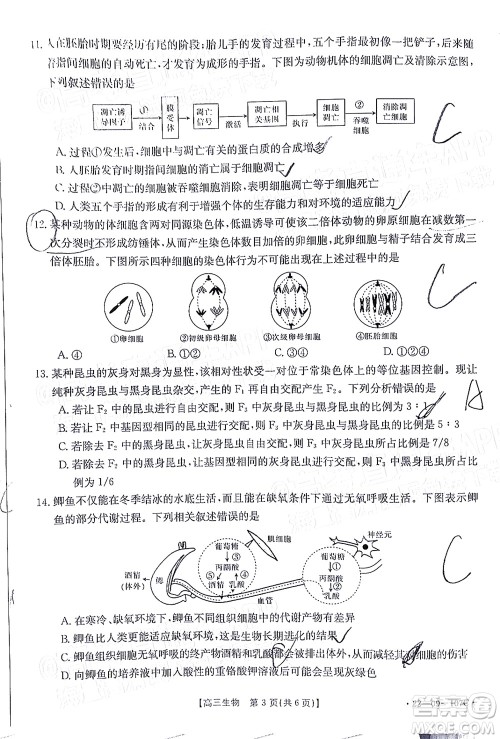 11. 人在胚胎时期要经历有尾的阶段;胎儿手的发育过程中,五个手指最初愈合在一起像一把铲子,后来随着指间细胞的自动死亡,才发育为成形的手指。下图为动物机体的细胞凋亡及清除示意图,
下列叙述错误的是
凋亡诱导因子 ① 结合 膜受体 凋亡信号 激活 凋亡相关基因 执行 细胞凋亡 ② 吞噬细胞 清除凋亡细胞
A. 过程①发生后,细胞中与凋亡有关的蛋白质的合成将增多
B. 人胚胎发育时期尾部细胞的消亡属于细胞凋亡
C. 过程②中凋亡的细胞被吞噬细胞吞噬
D. 人类五个手指的形成有利于增强其对环境的适应能力
12. 某种动物的体细胞含两对同源染色体,低温诱导可使二倍体动物的卵原细胞在减数第一
次分裂时不形成纺锤体,从而产生染色体数目加倍的卵细胞,此卵细胞与精子结合发育成三
倍体胚胎。下图所示四种细胞的染色体行为,在上述过程中不可能出现的是
①卵细胞 ②初级卵母细胞 ③次级卵母细胞 ④胚胎细胞
A. ①④ B. ②④ C. ② D. ③
13. 某种昆虫的灰身对黑身为显性,该相对性状受一对位于常染色体上的等位基因控制。现让
纯种灰身昆虫与黑身昆虫杂交,产生F₁,F₁再自由交配产生F₂。下列相关分析错误的是
A. 若让F₂中的昆虫进行自由交配,则F₃中灰身昆虫与黑身昆虫的比例为3∶1
B. 若让F₂中的灰身昆虫与黑身昆虫交配,则F₃中灰身昆虫与黑身昆虫的比例为5∶3
C. 若除去F₂中的黑身昆虫,让灰身昆虫自由交配,则F₃中灰身昆虫的比例为7/8
D. 若除去F₂中基因型为显性纯合的昆虫,让剩余的昆虫自由交配,则F₃中灰身昆虫的比
例为1/6
14. 鲫鱼不仅能在冬季结冰的水底生活,而且能在缺氧环境下长时间进行无氧呼吸产生能量。下图表示鲫
鱼的部分代谢过程。下列相关叙述错误的是
酒精(体外) 鳃 葡萄糖 丙酮酸 酒精 乳酸 肌细胞 血管 葡萄糖 丙酮酸 乳酸 神经元
A. 在寒冷、缺氧环境下,鲫鱼不同细胞中的代谢产物存在差异
B. 鲫鱼比人类更能适应缺氧环境,这是生物长期进化的结果
C. 鲫鱼将乳酸转变成酒精并排出体外,从而减轻其酸中毒
D. 鲫鱼肌细胞的代谢产物中加入酸性的重铬酸钾溶液后可能呈灰绿色
【高三生物 第3页(共6页)】